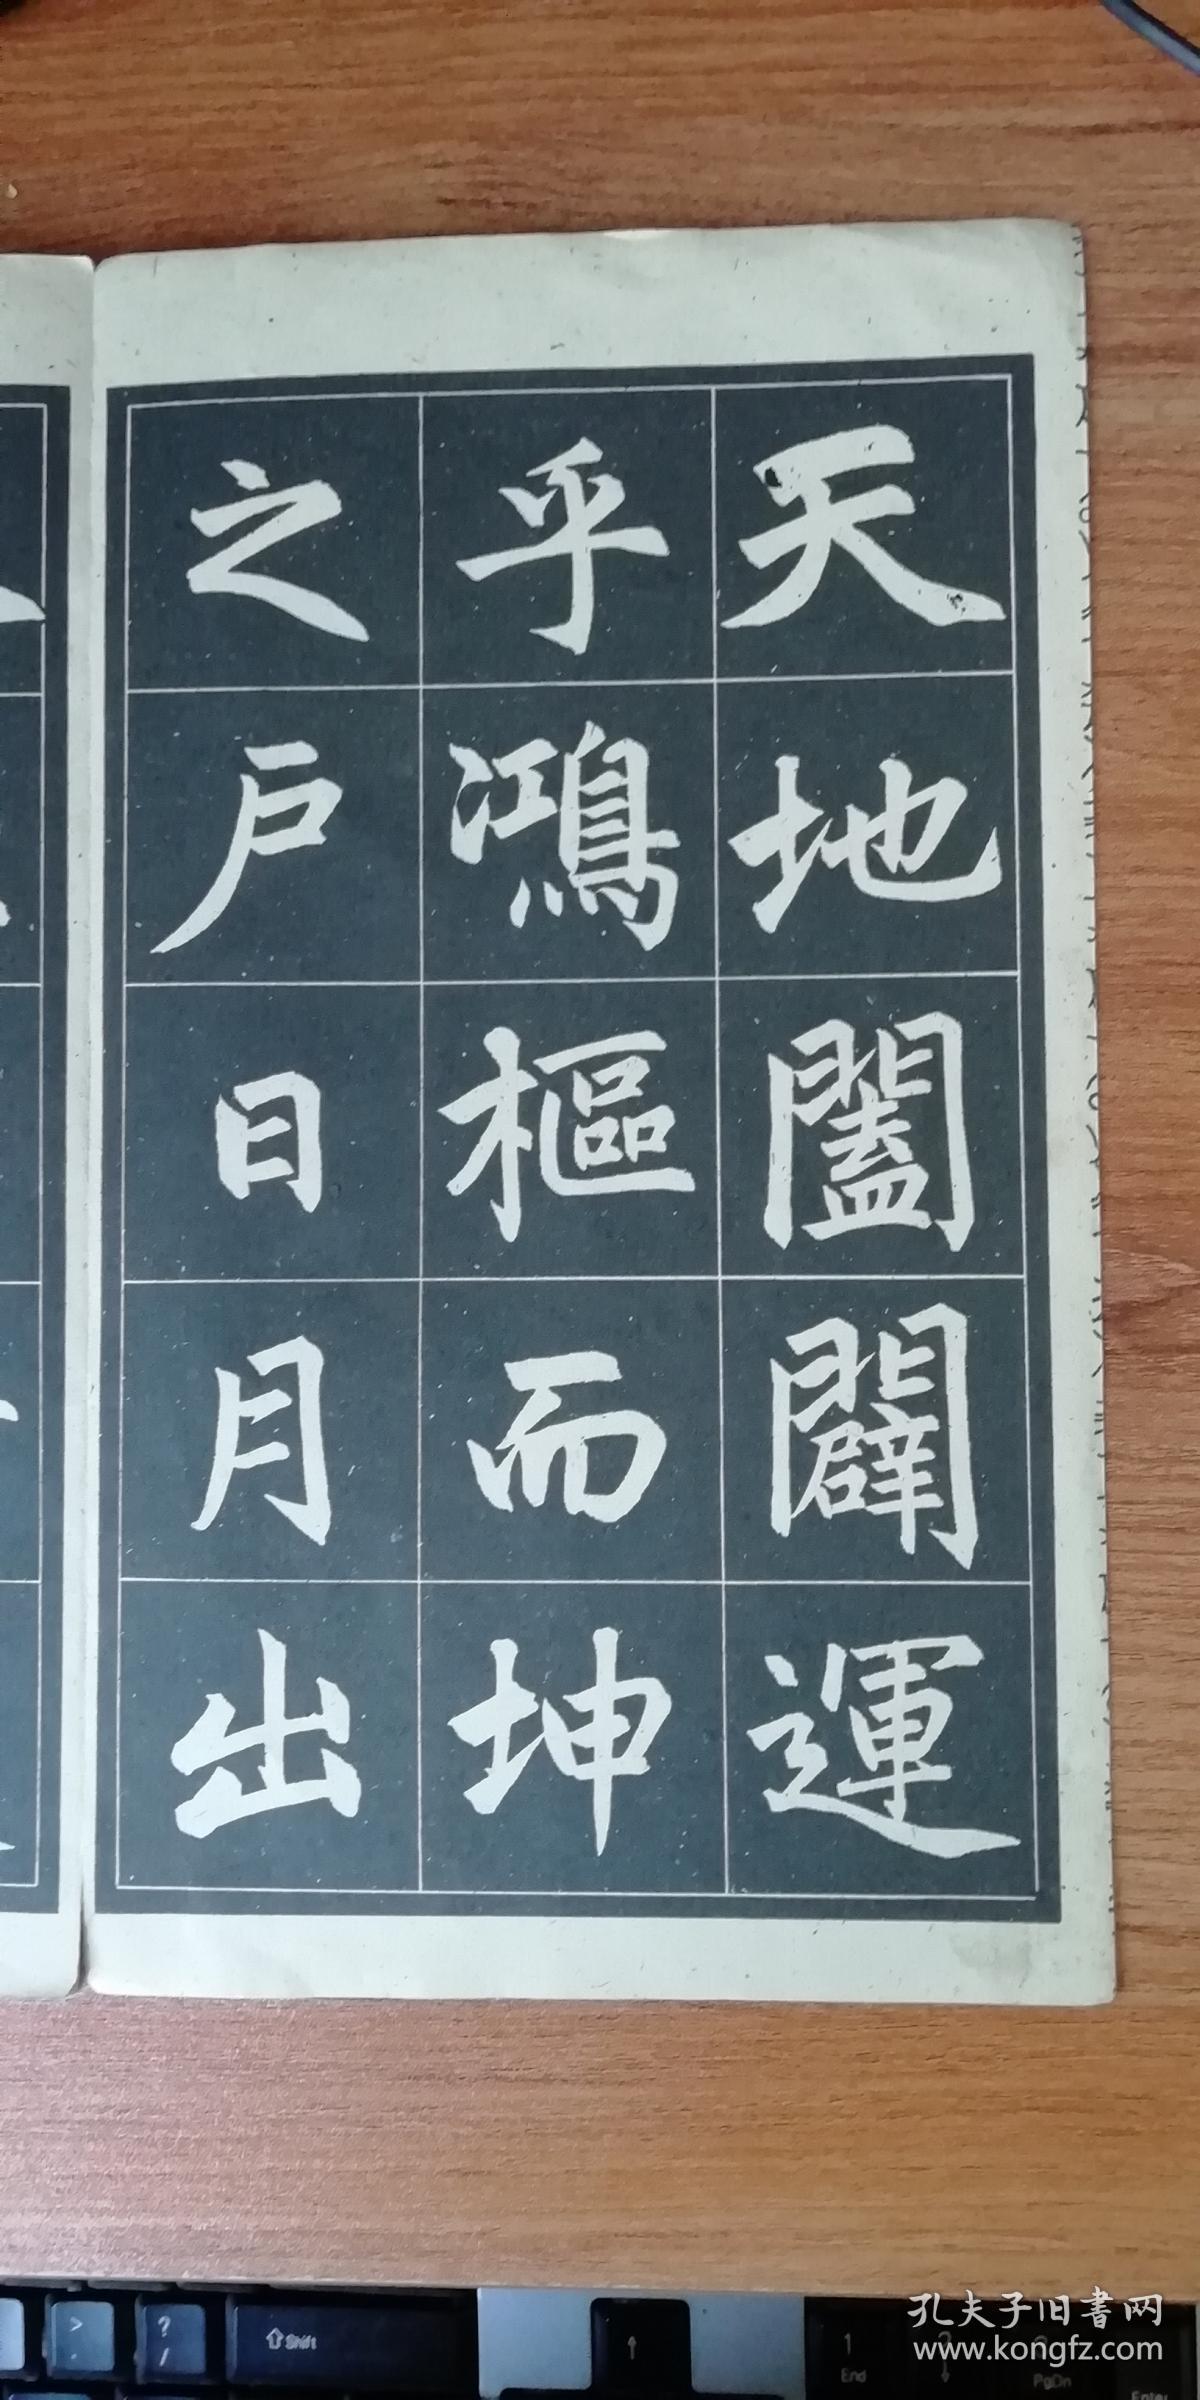 天地闔闢運
乎鴻樞而坤
之戶日月出
Shift
?
/
>
↑
1
End
2
↓
PgDn
Enter
孔夫子旧書网
www.kongfz.com